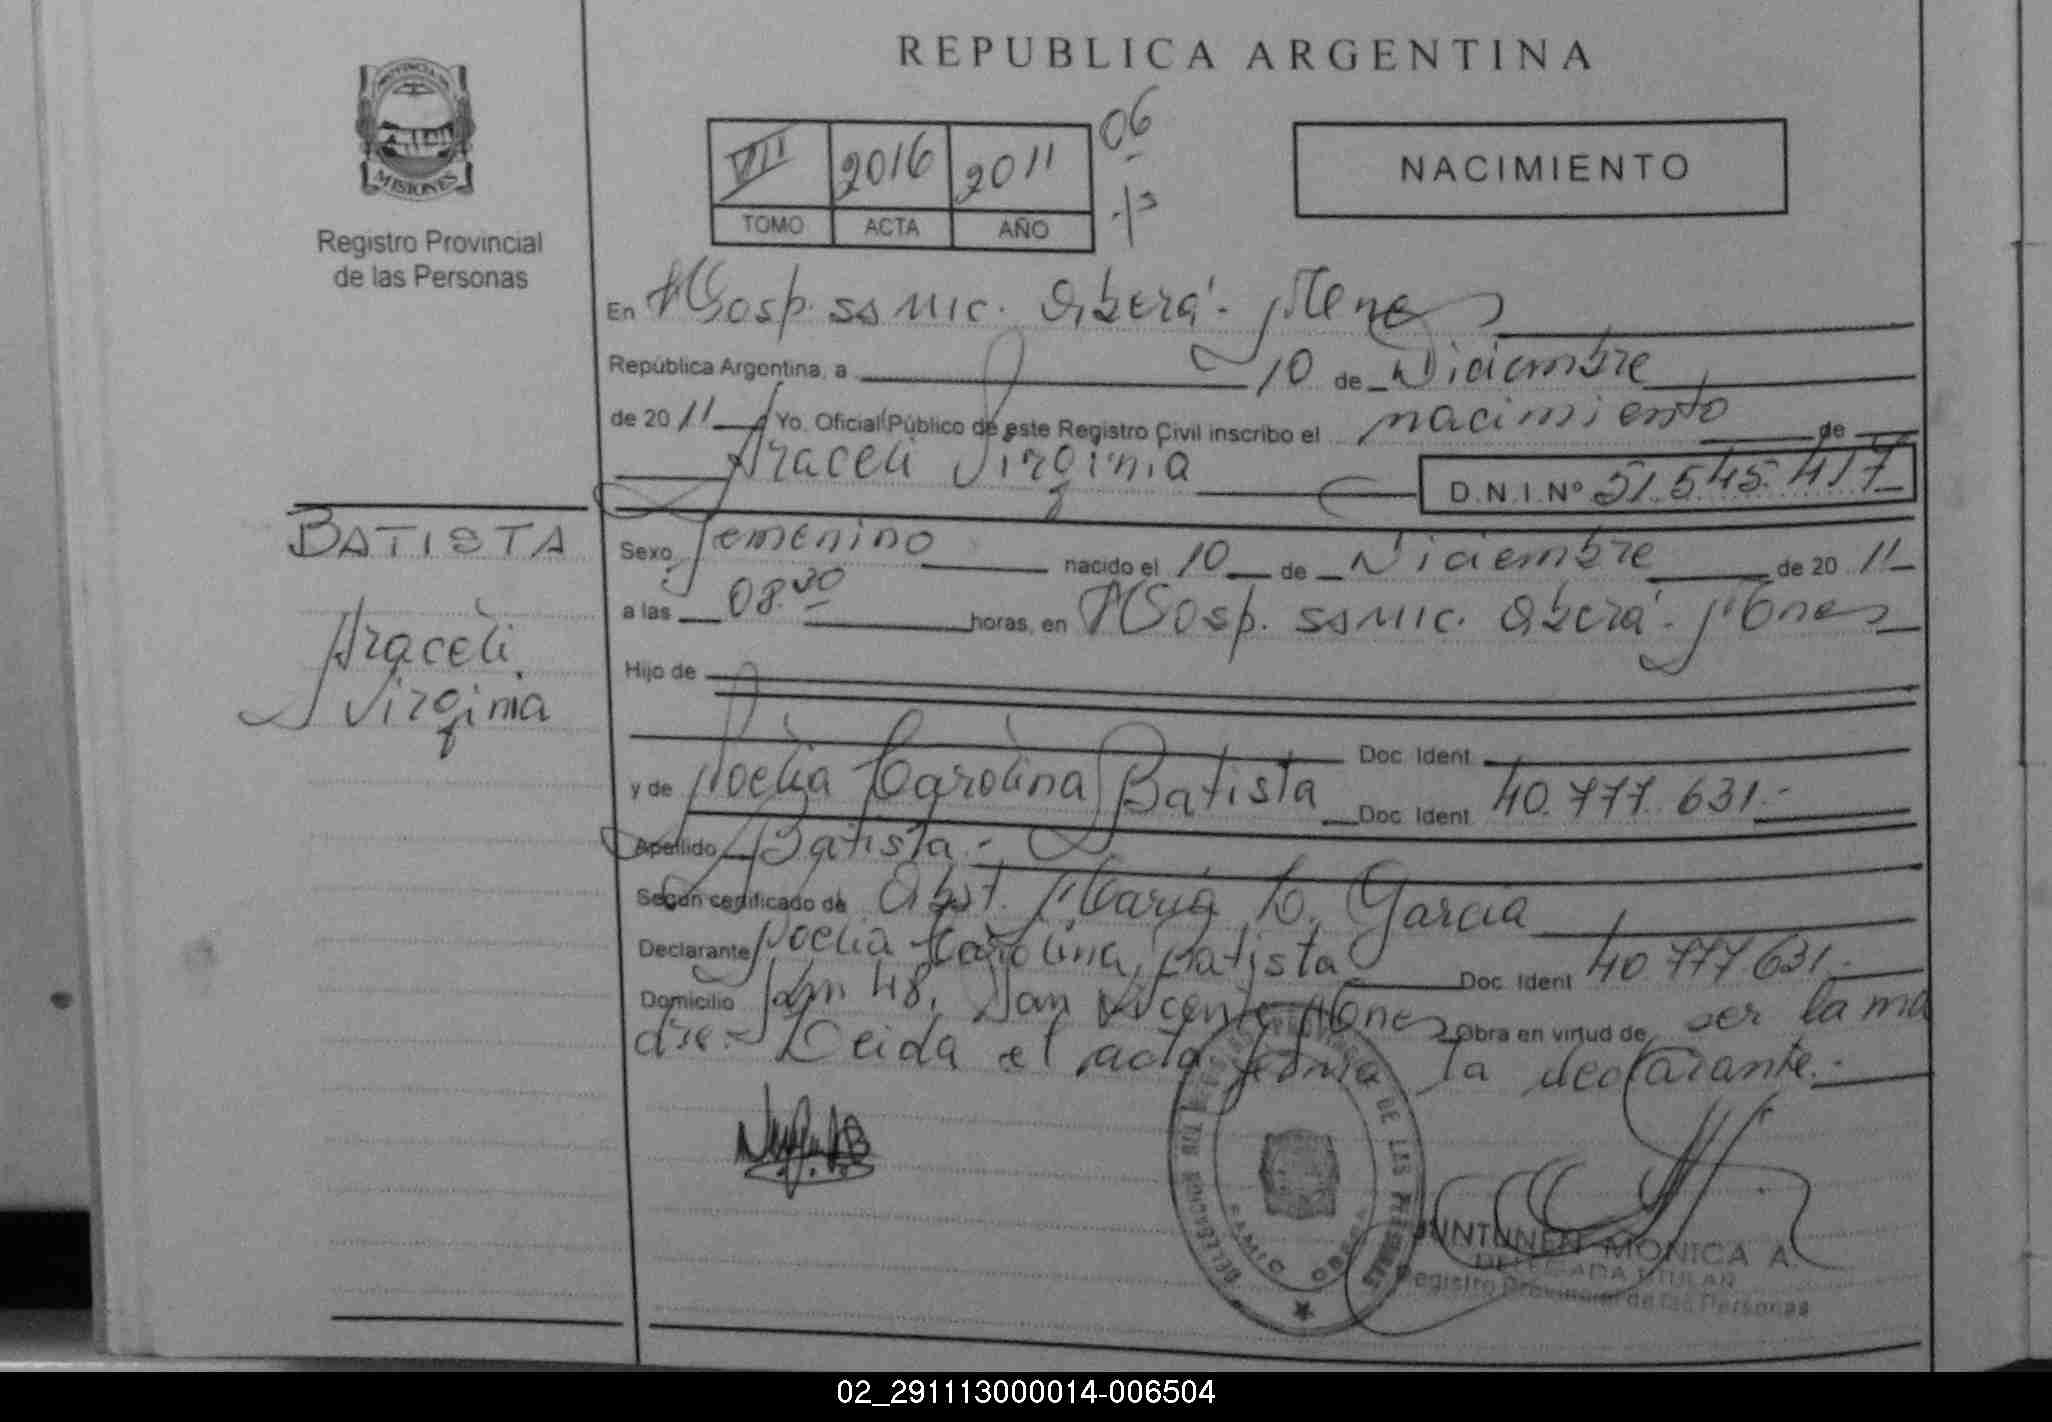 REPUBLICA ARGENTINA
PROVINCIA DE
MISIONES
Registro Provincial
de las Personas
VII 2016 2011 06
TOMO ACTA AÑO
NACIMIENTO
En Hosp. SS MIC. Oberá - Mnes
República Argentina, a 10 de Diciembre
de 2011 Yo, Oficial Público de este Registro Civil inscribo el nacimiento de
Araceli Virginia D.N.I. Nº 51.545.417
BATISTA
Araceli
Virginia
Sexo femenino nacido el 10 de Diciembre de 2011
a las 08.30 horas, en Hosp. SS MIC. Oberá - Mnes
Hijo de
Doc. Ident.
y de Noelia Carolina Batista Doc. Ident. 40.777.631.-
Apellido Batista.-
Según certificado de Obst. María C. Garcia
Declarante Noelia Carolina Batista Doc. Ident 40.777.631.-
Domicilio Km 48, San Vicente Mnes Obra en virtud de ser la ma
dre.- Leida el acta firma la declarante.-
DE LAS PERSONAS
DELEGACION
OBERA
JUNTUNEN MONICA A.
DELEGADA TITULAR
Registro Provincial de las Personas
02_291113000014-006504